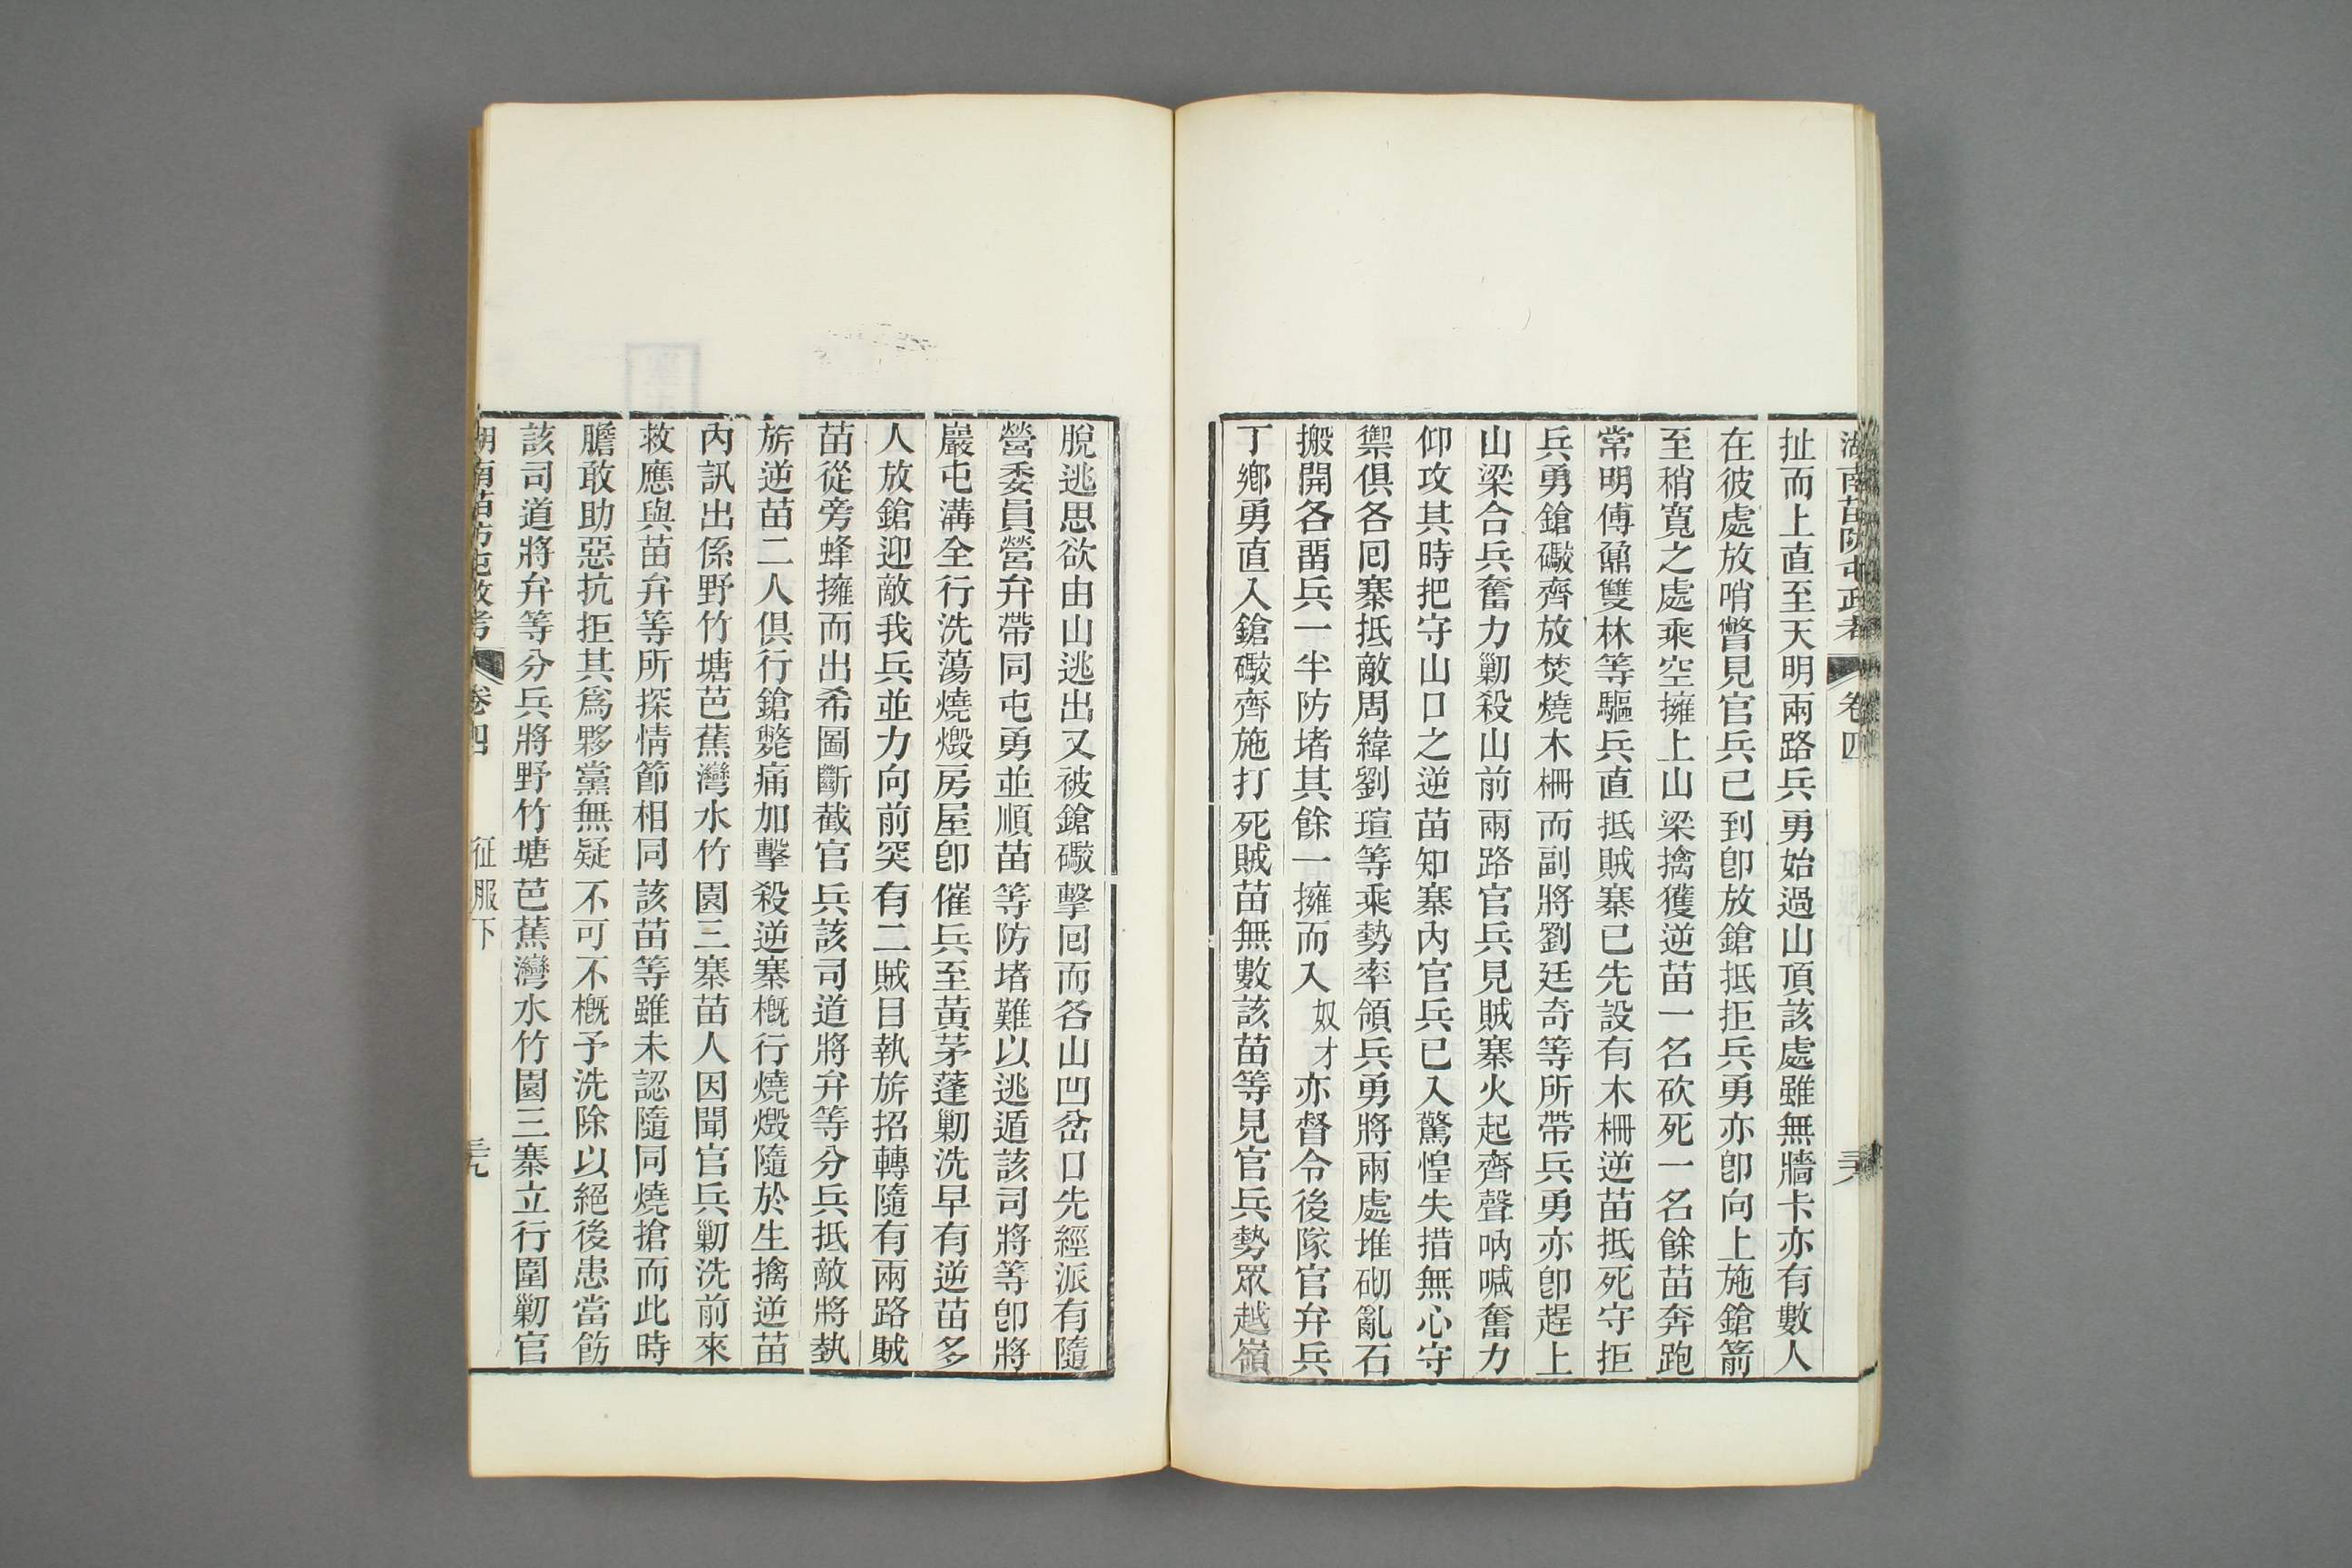 湖南苗防屯政考
卷四
三六
扯而上直至天明兩路兵勇始過山頂該處雖無牆卡亦有數人
在彼處放哨瞥見官兵已到卽放鎗抵拒兵勇亦卽向上施鎗箭
至稍寬之處乘空擁上山梁擒獲逆苗一名砍死一名餘苗奔跑
常明傅鼐雙林等驅兵直抵賊寨已先設有木柵逆苗抵死守拒
兵勇鎗礮齊放焚燒木柵而副將劉廷奇等所帶兵勇亦卽趕上
山梁合兵奮力剿殺山前兩路官兵見賊寨火起齊聲吶喊奮力
仰攻其時把守山口之逆苗知寨內官兵已入驚惶失措無心守
禦俱各囘寨抵敵周緯劉瑄等乘勢率領兵勇將兩處堆砌亂石
搬開各畱兵一半防堵其餘一擁而入奴才亦督令後隊官弁兵
丁鄉勇直入鎗礮齊施打死賊苗無數該苗等見官兵勢眾越嶺
脫逃思欲由山逃出又被鎗礮擊囘而各山凹岔口先經派有隨
營委員營弁帶同屯勇並順苗等防堵難以逃遁該司將等卽將
巖屯溝全行洗蕩燒燬房屋卽催兵至黃茅蓬剿洗早有逆苗多
人放鎗迎敵我兵並力向前突有二賊目執旂招轉隨有兩路賊
苗從旁蜂擁而出希圖斷截官兵該司道將弁等分兵抵敵將執
旂逆苗二人俱行鎗斃痛加擊殺逆寨概行燒燬隨於生擒逆苗
內訊出係野竹塘芭蕉灣水竹園三寨苗人因聞官兵剿洗前來
救應與苗弁等所探情節相同該苗等雖未認隨同燒搶而此時
膽敢助惡抗拒其爲夥黨無疑不可不概予洗除以絕後患當飭
該司道將弁等分兵將野竹塘芭蕉灣水竹園三寨立行圍剿官
湖南苗防屯政考
卷四
征服下
三九